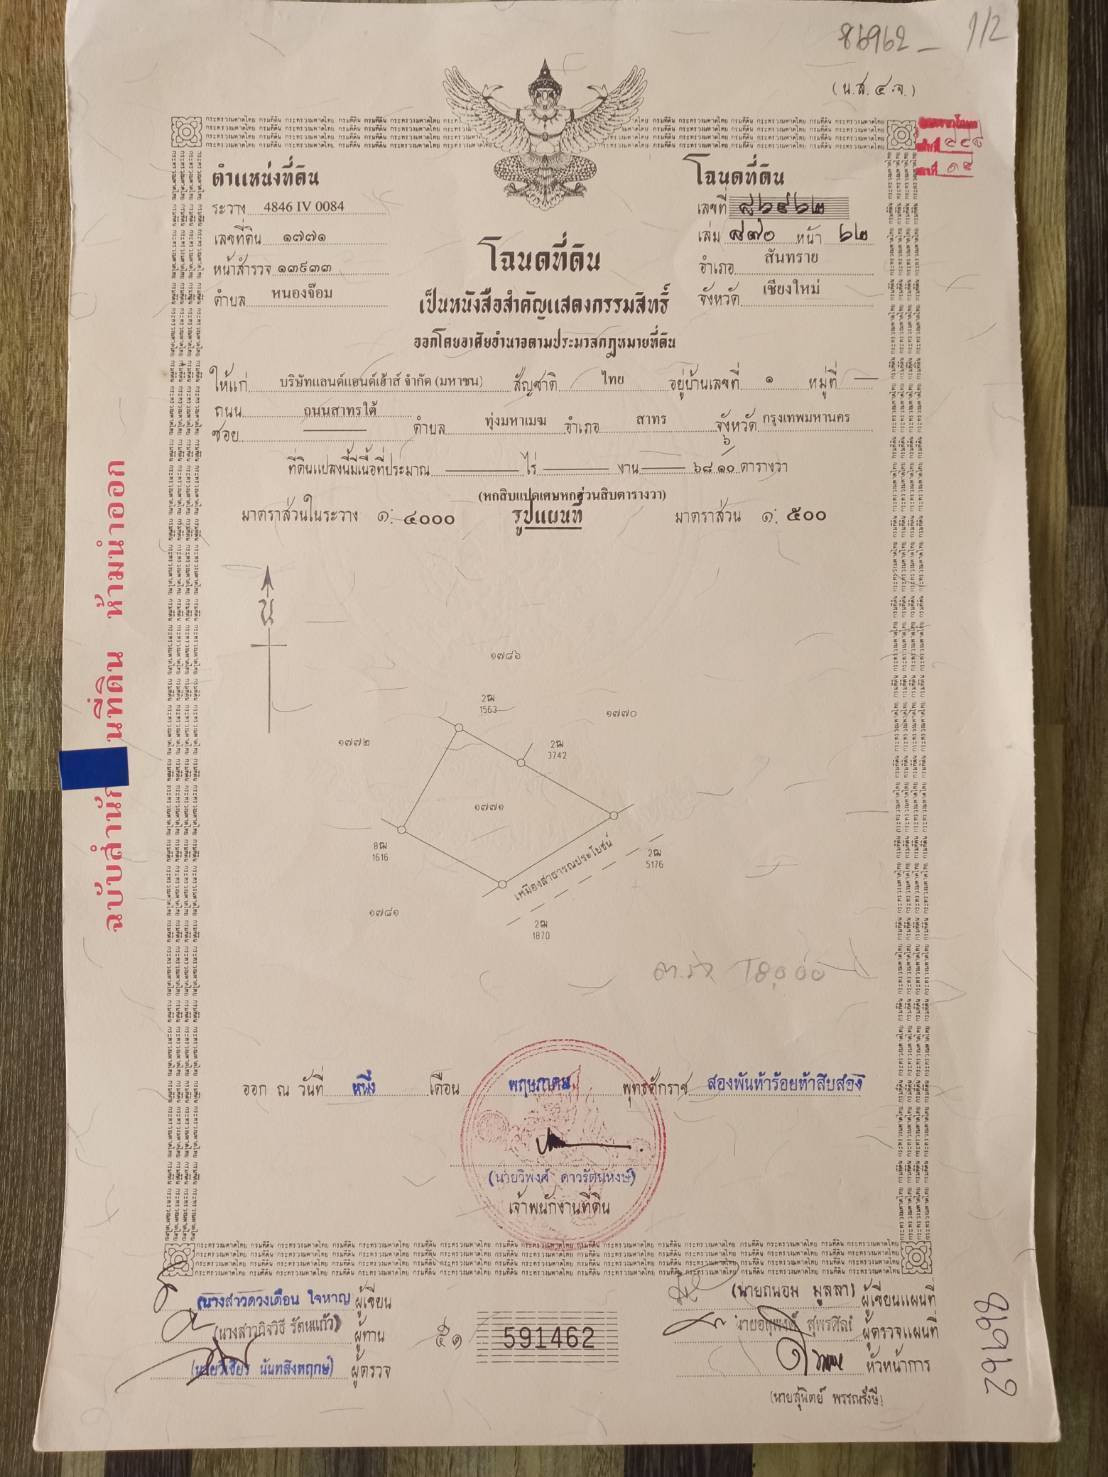 86962 - 1/2
(น.ส. ๔ จ.)
ตำแหน่งที่ดิน
ระวาง 4846 IV 0084
เลขที่ดิน ๑๗๗๑
หน้าสำรวจ ๑๓๙๓๓
ตำบล หนองจ๊อม
โฉนดที่ดิน
เลขที่ ๘๖๙๖๒
เล่ม ๘๗๐ หน้า ๖๒
อำเภอ สันทราย
จังหวัด เชียงใหม่
โฉนดที่ดิน
เป็นหนังสือสำคัญแสดงกรรมสิทธิ์
ออกโดยอาศัยอำนาจตามประมวลกฎหมายที่ดิน
ให้แก่ บริษัทแลนด์แอนด์เฮ้าส์ จำกัด (มหาชน) สัญชาติ ไทย อยู่บ้านเลขที่ ๑ หมู่ที่ —
ถนน ถนนสาทรใต้
ซอย — ตำบล ทุ่งมหาเมฆ อำเภอ สาทร จังหวัด กรุงเทพมหานคร
ที่ดินแปลงนี้มีเนื้อที่ประมาณ — ไร่ — งาน — ๖๘ ๖/๑๐ ตารางวา
(หกสิบแปดเศษหกส่วนสิบตารางวา)
มาตราส่วนในระวาง ๑: ๔๐๐๐ รูปแผนที่ มาตราส่วน ๑: ๕๐๐
น
๑๗๘๖
2ฒ
1563
๑๗๗๐
๑๗๗๒
2ฒ
3742
๑๗๗๑
8ฒ
1616
เหมืองสาธารณประโยชน์
2ฒ
5176
๑๗๘๑
2ฒ
1870
ฉบับสำนัก นที่ดิน ห้ามนำออก
ออก ณ วันที่ หนึ่ง เดือน พฤษภาคม พุทธศักราช สองพันห้าร้อยห้าสิบสอง
(นายวิพงศ์ ดาวรัตนหงษ์)
เจ้าพนักงานที่ดิน
(นางสาวดวงเดือน ใจหาญ) ผู้เขียน
ผู้ทาน
ผู้ตรวจ
๕๑ 591462
(นายถนอม มูลลา) ผู้เขียนแผนที่
ผู้ตรวจแผนที่
หัวหน้าการ
86962